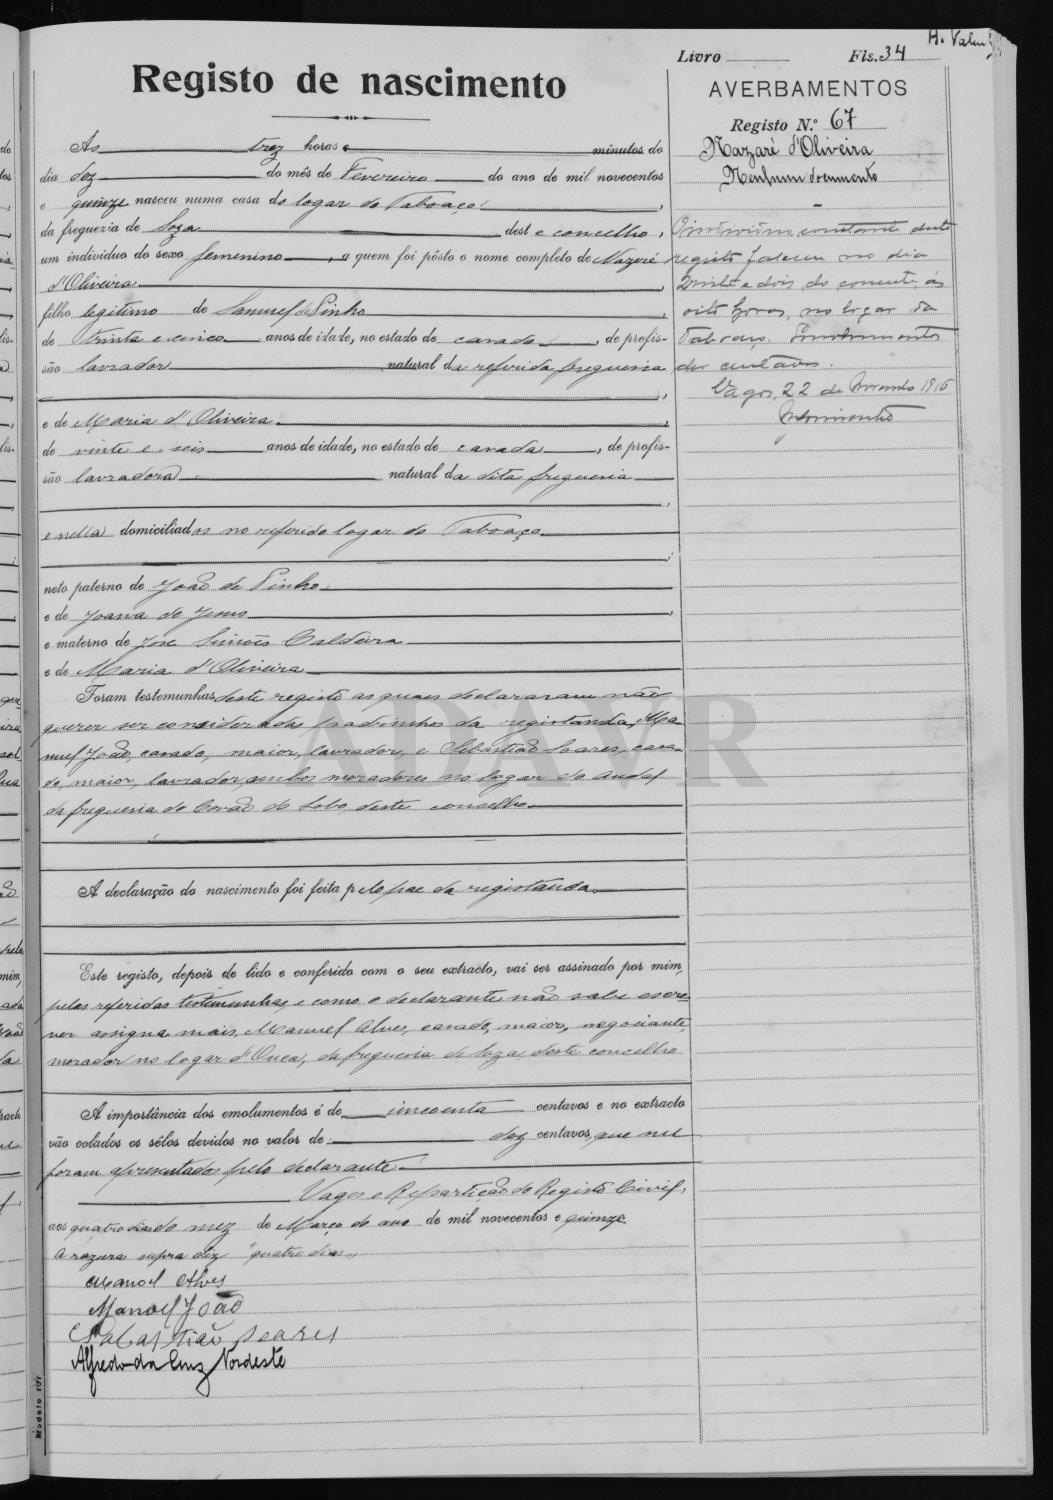 H. Valen
Livro Fls. 34
Registo de nascimento
AVERBAMENTOS
Registo N.º 67
Nazaré d'Oliveira
Nenhum documento
As trez horas e minutos do
dia dez do mês de Fevereiro do ano de mil novecentos
e quinze nasceu numa casa do logar do Taboaço,
da freguezia de Soza deste concelho,
um individuo do sexo femenino, a quem foi pôsto o nome completo de Nazaré
d'Oliveira,
filho legitimo de Samuel de Pinho,
de trinta e cinco anos de idade, no estado de casado, de profis-
são lavrador natural da referida freguesia,
e de Maria d'Oliveira,
de vinte e seis anos de idade, no estado de casada, de profis-
são lavradora natural da dita freguesia,
e nella domiciliados no referido logar do Taboaço;
neto paterno de João de Pinho
e de Joana de Jesus,
e materno de José Simões Caldeira
e de Maria d'Oliveira
Foram testemunhas deste registo as quaes declararam não
querer ser considerados padrinhos da registanda, Ma-
nuel João, casado, maior, lavrador, e Sebastião Soares, casa-
do, maior, lavrador, ambos moradores no logar da
da freguesia de Covão do Lobo, deste concelho
A declaração do nascimento foi feita pelo pae da registanda
Este registo, depois de lido e conferido com o seu extracto, vai ser assinado por mim,
pelas referidas testemunhas, e como o declarante não sabe escre-
ver assigna mais, Manuel Alves, casado, maior, negociante,
morador no logar d'Ouca, da freguesia de Soza, deste concelho
A importância dos emolumentos é de cincoenta centavos e no extracto
vão colados os sêlos devidos no valor de: dez centavos, que me
foram apresentados pelo declarante.
Vagos e Repartição do Registo Civil,
aos quatro dias do mez de Março do ano de mil novecentos e quinze
A razura supra diz "quatro dias"
Manoel Alves
Manoel João
Sabastião Soares
Alfredo da Cruz Nordeste
O individuo constante deste
registo faleceu no dia
vinte e dois do corrente, ás
oito horas, no logar da
Taboaço. Emolumentos
dez centavos.
Vagos, 22 de 1916
ADAVR
Modelo 101